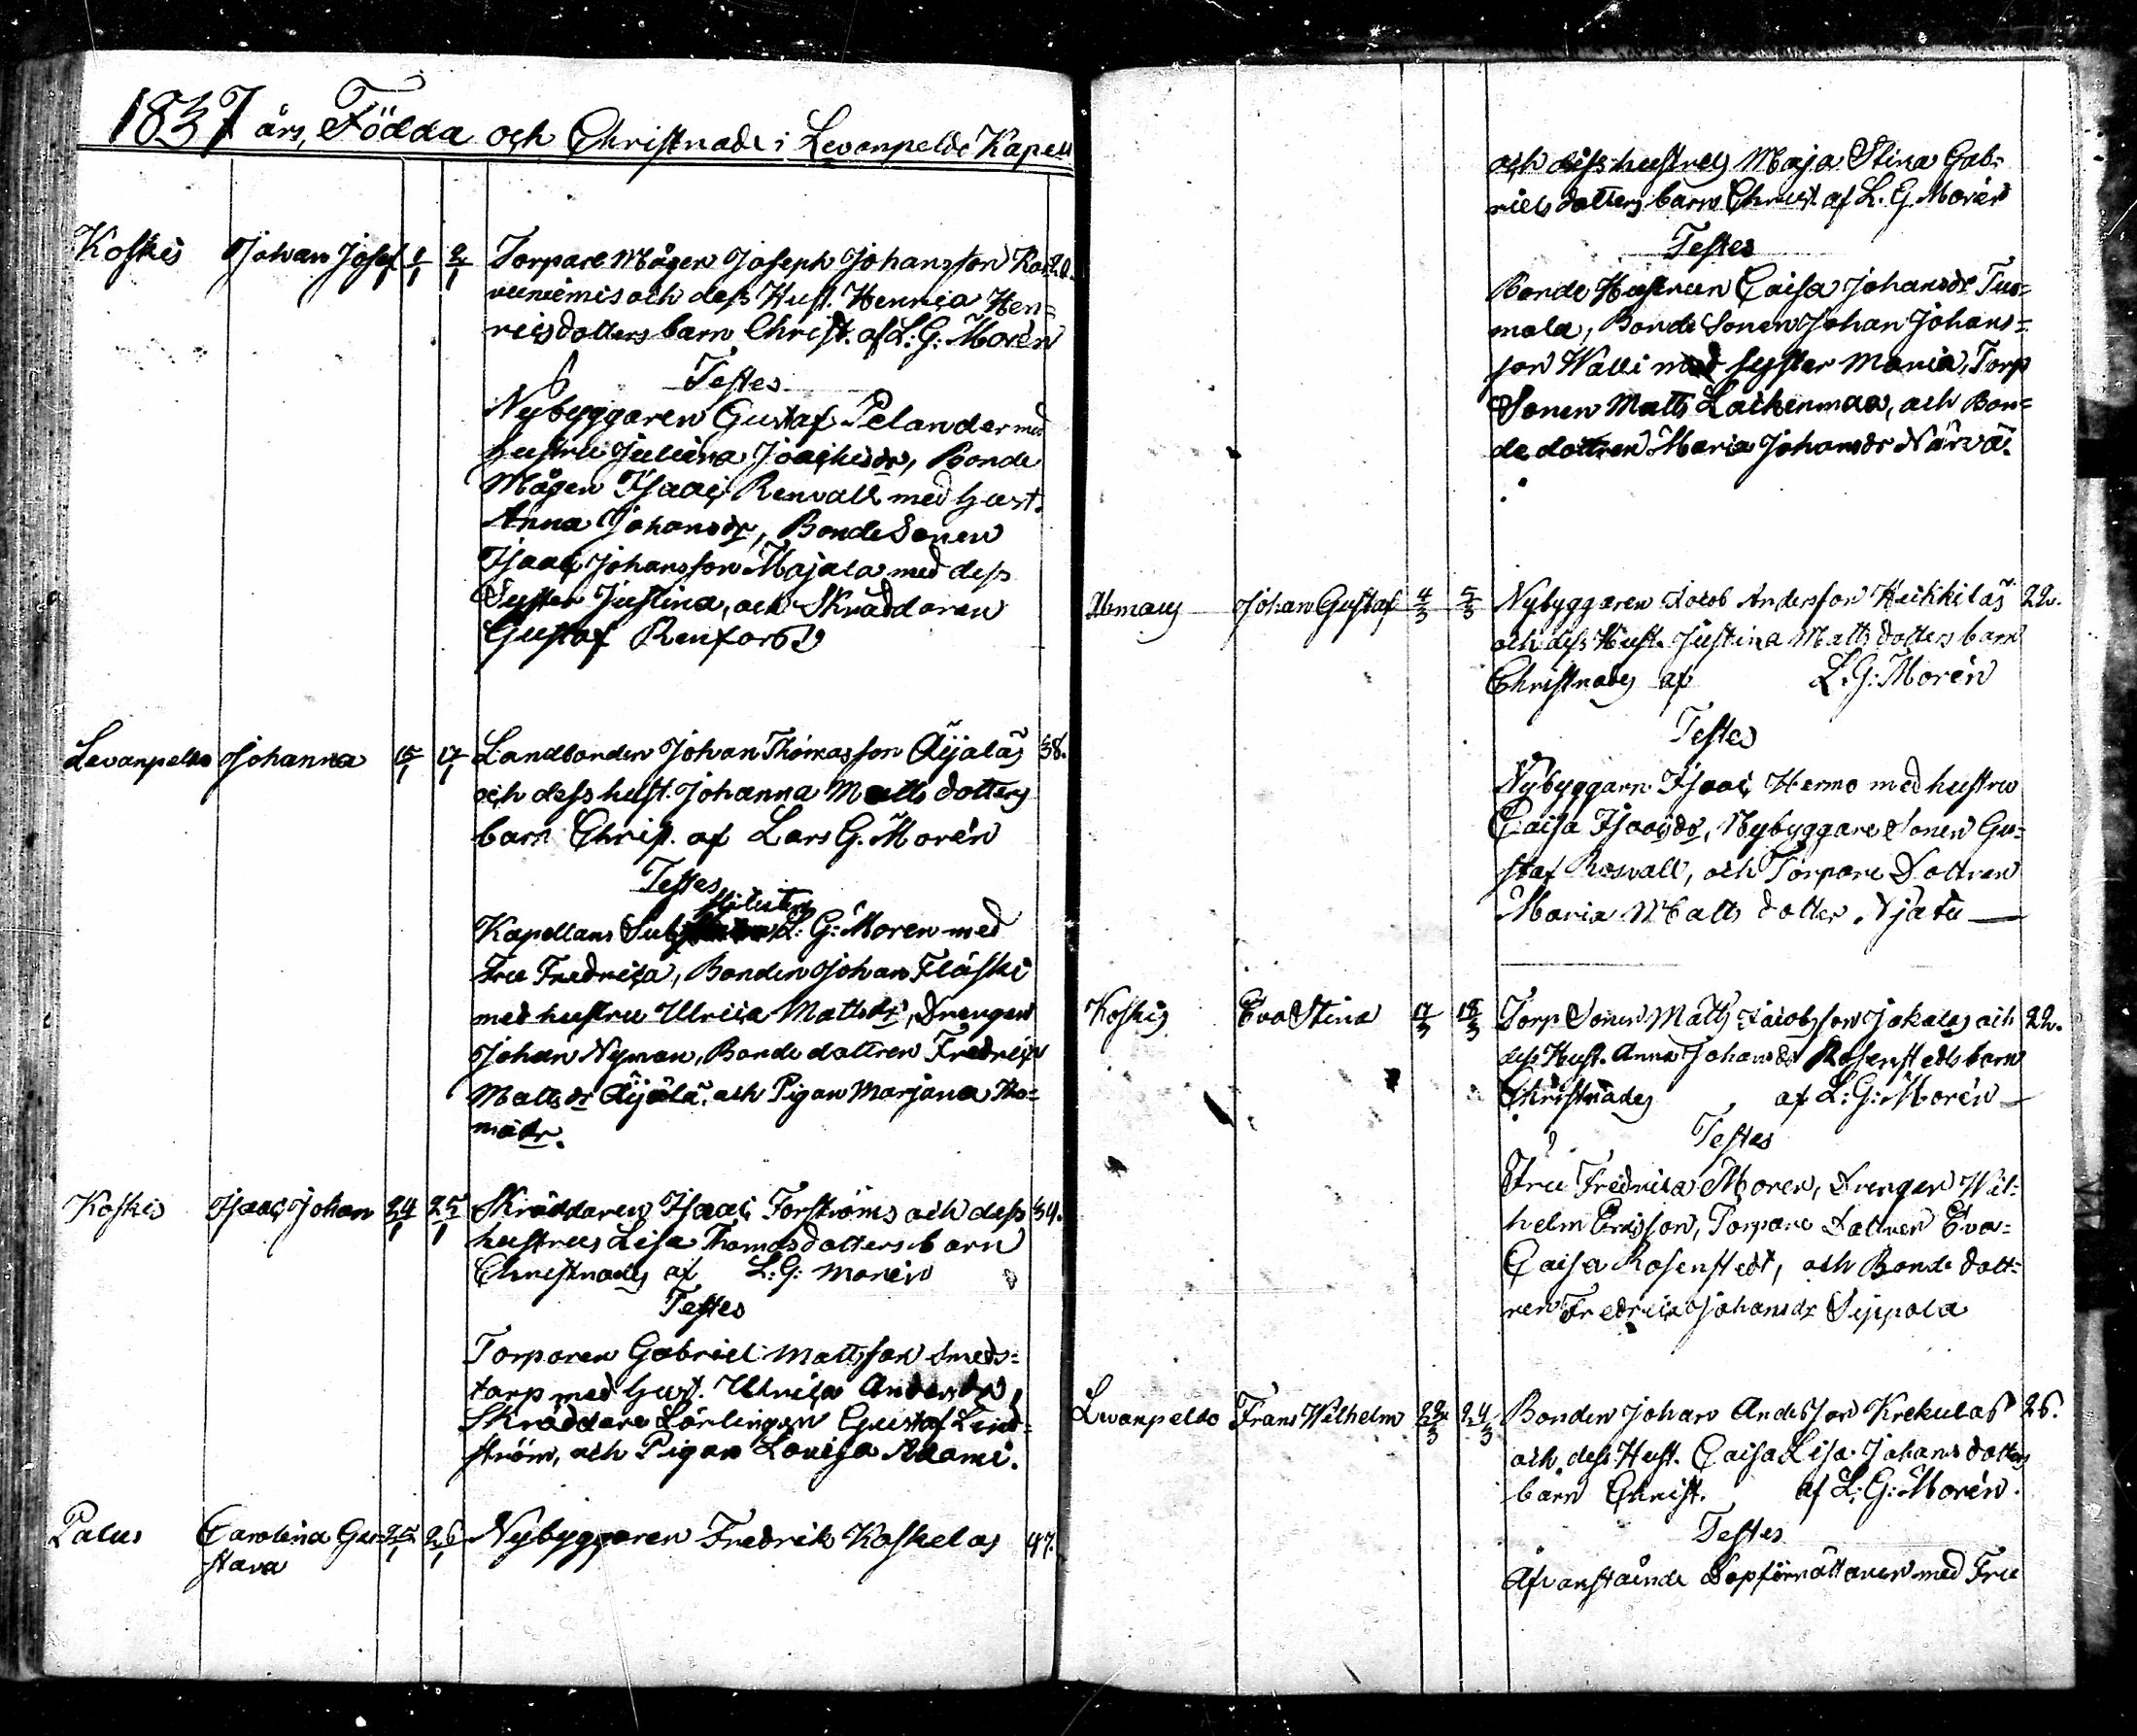 1837 års, Födda och Christnade i Levanpeldo Kapell
Koskis Johan Josef 1/1 2/1 Torpare Mågen Joseph Johansson Kar= 28.
veniemis och dess Hust. Henrica Hen=
ricsdotters barn Christ. af L: G: Morén
Testes
Nybyggaren Gustaf Pelander med
hustru Juliana Joachisdr, Bonde
Mågen Isaac Renvall med hust.
Anna Johansdr, Bonde Sonen
Isaac Johansson Majala med dess
Syster Justina, och Skräddaren
Gustaf Renfors
Levanpeldo Johanna 15/1 17/1 Landbonden Johan Thomasson Äijäläs 38.
och dess hust. Johanna Matts dotters
barn Christ. af Lars G. Morén
Testes
Kapellans Substituten L: G: Moren med
Fru Fredrica, Bonden Johan Fläski
med hustru Ulrica Mattsdr, Drengen
Johan Nyman, Bonde dottren Fredrica
Mattsdr Äijälä, och Pigan Marjana Tho=
mædr.
Koskis Isaac Johan 24/1 25/1 Skräddaren Isaac Forströms och dess 34.
hustrus Lisa Thomasdotters barn
Christnades af L: G: Morén
Testes
Torparen Gabriel Mattsson Smeds=
torp med hust. Ulrica Andersdr,
Skräddare Lärlingen Gustaf Lind=
ström, och Pigan Lovisa Adami.
Palus Carolina Gu= 25/1 26/1 Nybyggaren Fredrik Koskelas 47.
stava
och dess hustrus Maja Stina Gab=
riels dotters barn Christ. af L. G. Morén
Testes
Bonde Hustrun Caisa Johansdr Tuo=
mola, Bonde Sonen Johan Johans=
son Walli med syster Maria, Torp
Sonen Matts Laikenmaa, och Bon=
de dottren Maria Johansdr Närvä.
Johan Gustaf 4/3 5/3 Nybyggaren Jacob Andersson Heikkiläs 22.
och dess Hust. Justina Matts dotters barn
Christnades af L: G: Morén
Testes
Nybyggarn Isaac Hermo med hustru
Caisa Isaacsdr, Nybyggare Sonen Gu=
staf Rosvall, och Torpare Dottren
Maria Matts dotter Njätu
Koskis Eva Stina 17/3 18/3 Torp Sonen Matts Jacobsson Jokalas och 22.
dess Hust. Anna Johansdr Rosenstedts barn
Christnades af L: G: Morén
Testes
Fru Fredrica Moren, Drengen Wil=
helm Ericsson, Torpare Dottren Eva=
Caisa Rosenstedt, och Bonde dott=
ren Fredrica Johansdr Sippola
Levanpeldo Frans Wilhelm 22/3 24/3 Bonden Johan Andersson Krekulas 26.
och dess Hust. Caisa Lisa Johans dotters
barn Christ. af L: G: Morén.
Testes
Ofvanstående Dopförrättaren med Fru